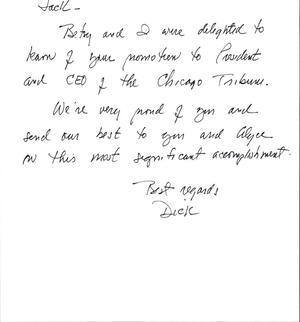 Jack -
Betsy and I were delighted to
learn of your promotion to President
and CEO of the Chicago Tribune.
We're very proud of you and
send our best to you and Alyce
on this most significant accomplishment.
Best regards
Dick